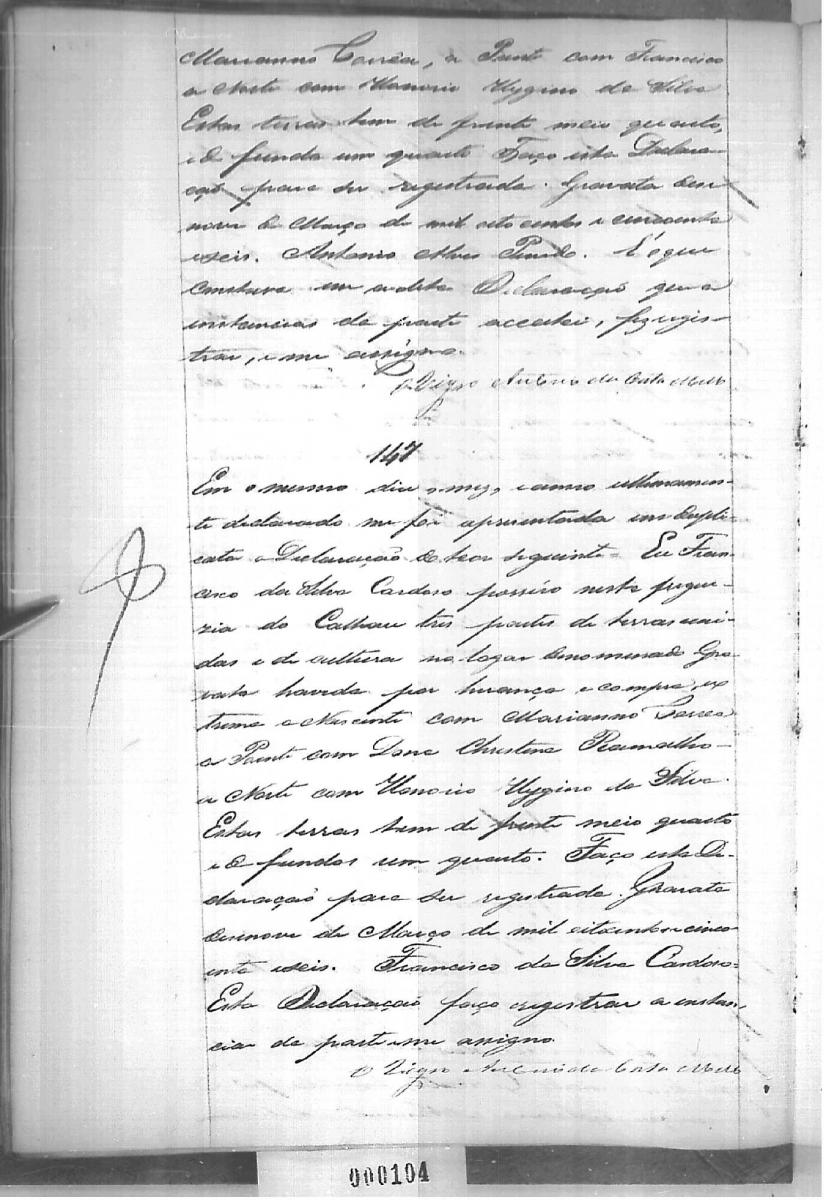 Marianno Corrêa, a Poente com Francisco
a Norte com Honorio Hygino da Silva
Estas terras tem de frente meio quarto,
e de fundo um quarto Faço esta Declara-
ção para ser registrada. Gravata dese-
nove de Março de mil oito centos e cincoenta
e seis. Antonio Alves . E' o que
constava em a dita Declaração que a
instancias da parte acceitei, fiz regis-
trar, e me assigno.
O Vigro Antonio da Costa Mello
147
Em o mesmo dia, mez, e anno ultimamen-
te declarado me foi apresentada em dupli-
cata a Declaração do teor seguinte = Eu Fran-
cisco da Silva Cardoso possúo nesta fregue-
zia do tres partes de terras uni-
das e de cultura no logar denominado Gra-
vata havida por herança e compra, ex
trema a Nascente com Marianno Correa
a Poente com Dona Christina Ramalho -
a Norte com Honorio Hygino da Silva.
Estas terras tem de frente meio quarto
e de fundos um quarto. Faço esta De-
claração para ser registrada. Gravata
desenove de Março de mil oitocentos e cinco-
enta e seis. Francisco da Silva Cardoso =
Esta Declaração faço registrar a instan-
cias da parte e me assigno
O Vigro Antonio da Costa Mello
000104